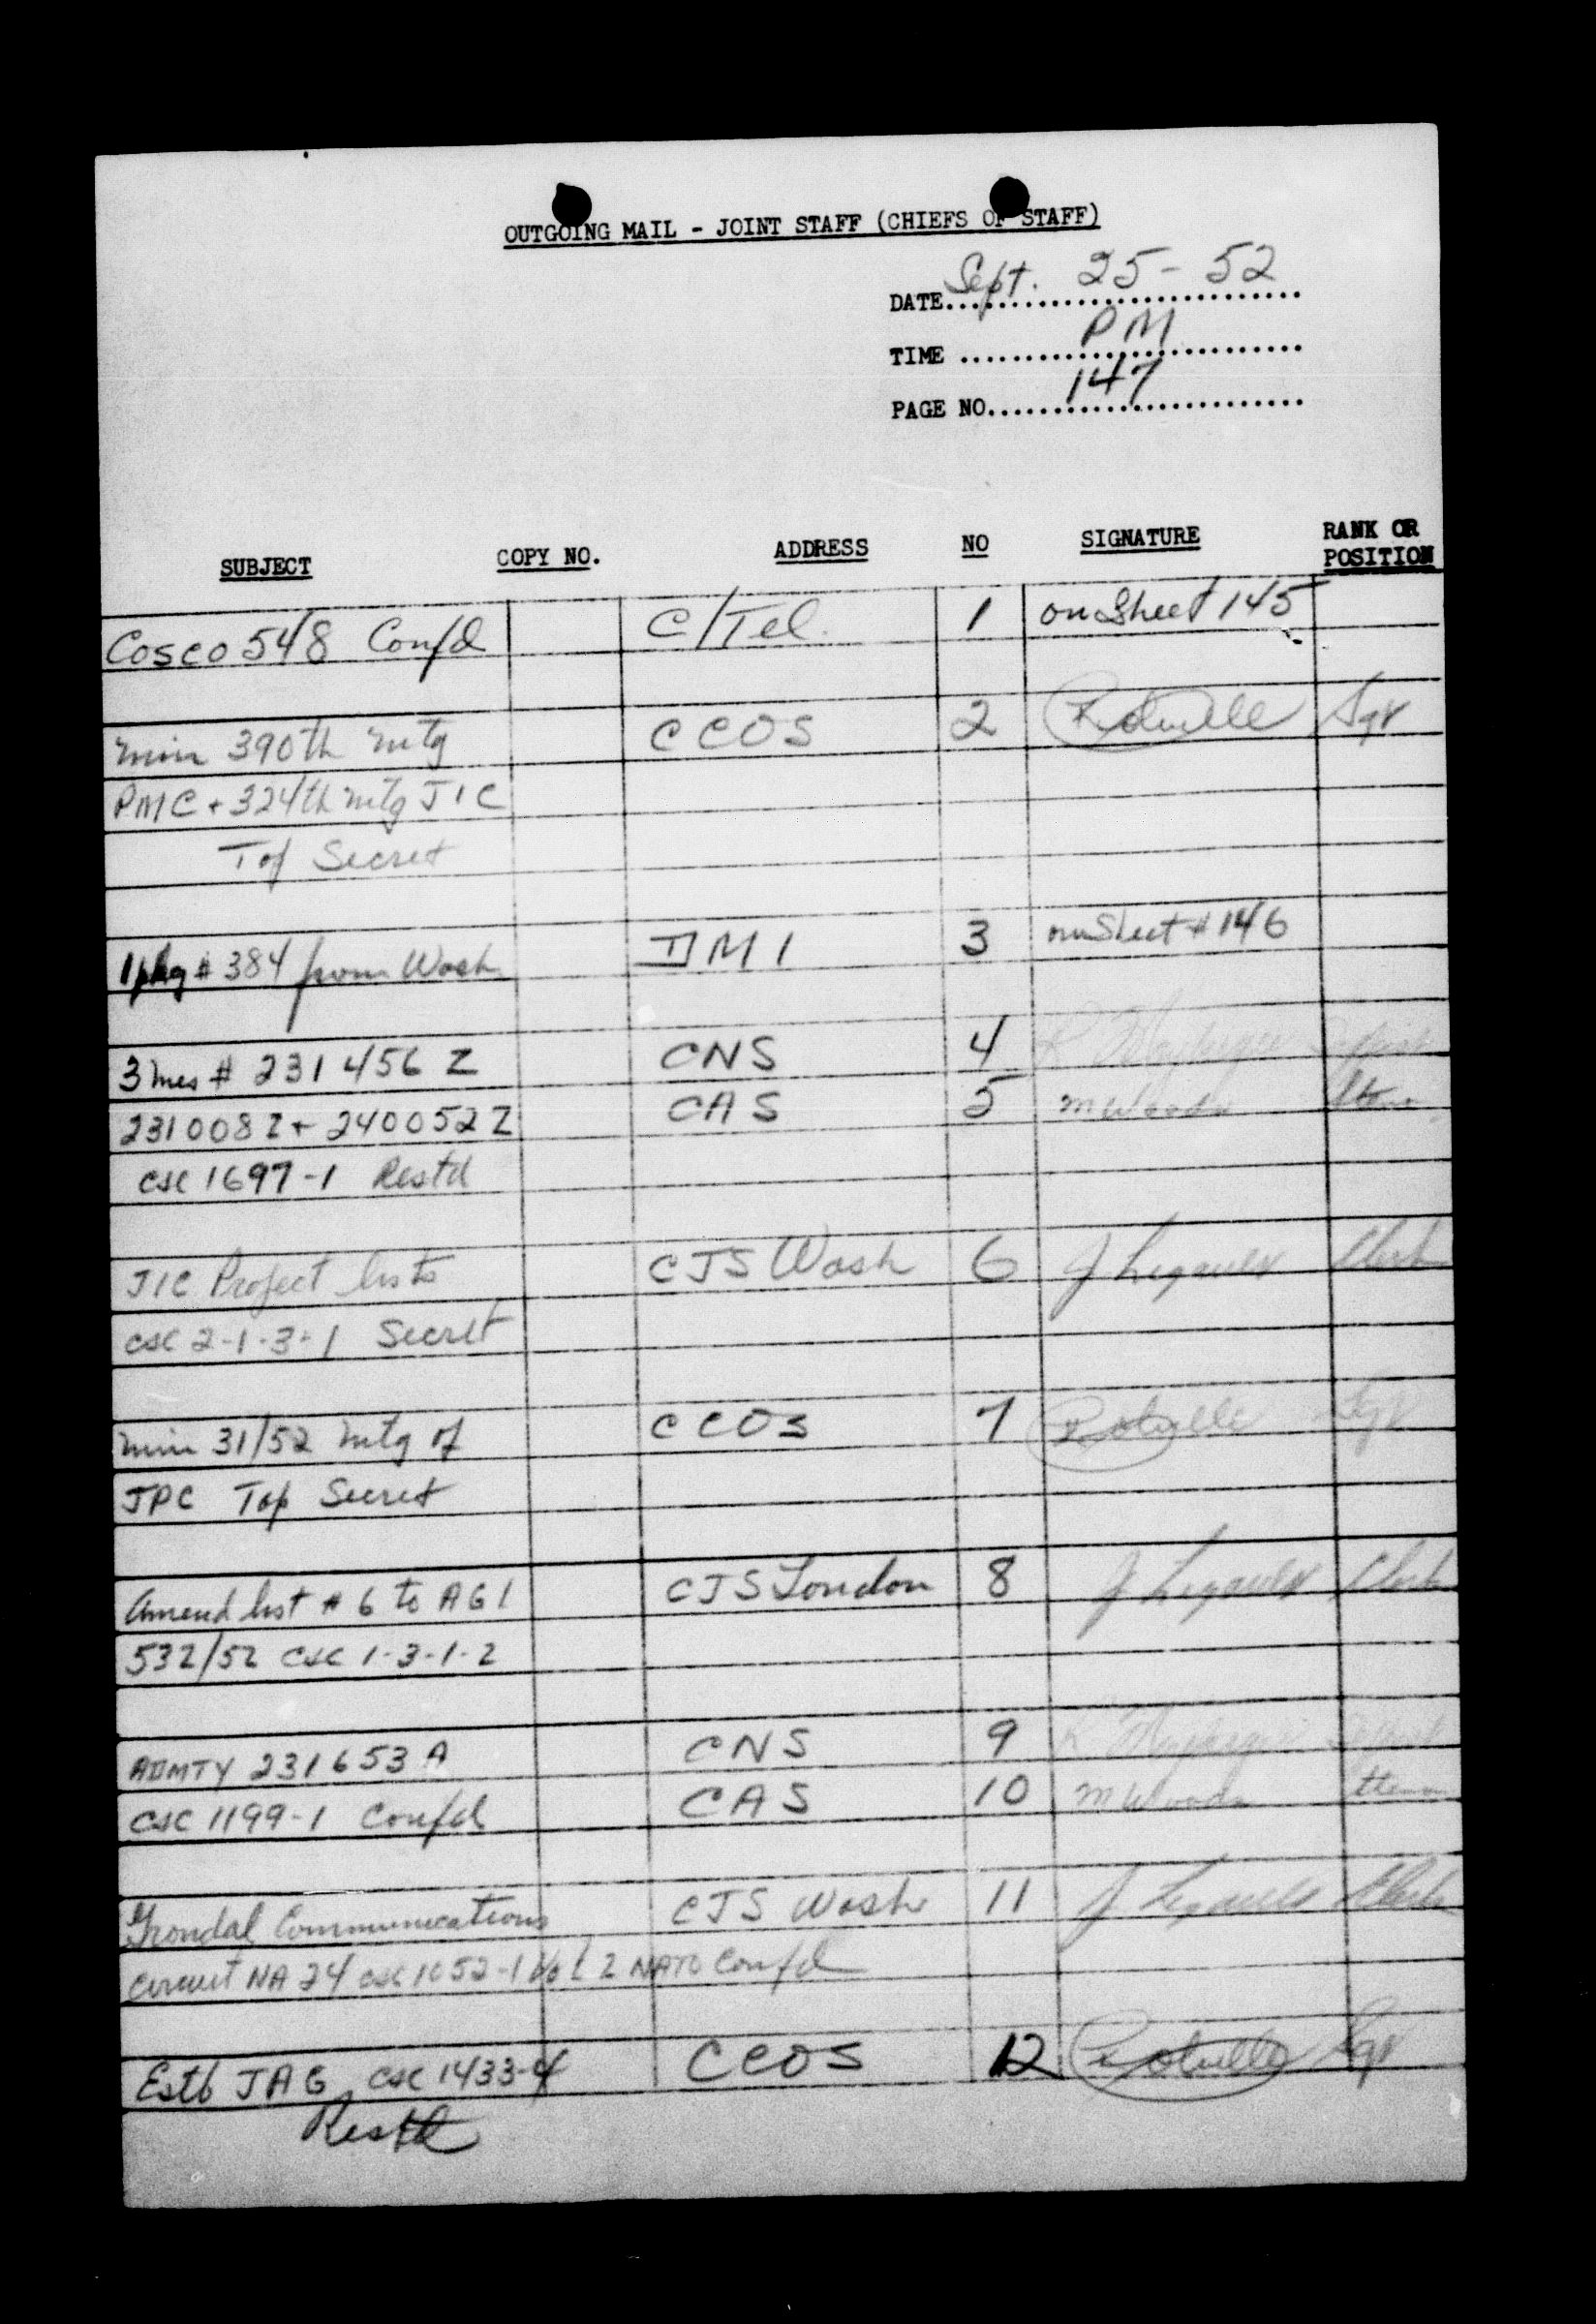 OUTGOING MAIL - JOINT STAFF (CHIEFS OF STAFF)
DATE Sept. 25 - 52
TIME PM
PAGE NO. 147
SUBJECT COPY NO. ADDRESS NO SIGNATURE RANK OR POSITION
Cosco 548 Confd C/Tel. 1 on Sheet 145
Min 390th mtg CCOS 2 Sgt
PMC + 324th mtg JIC
Top Secret
1 pkg # 384 from Wash DMI 3 on Sheet # 146
3 mes # 231456 Z CNS 4
231008Z + 240052Z CAS 5 M Woods Steno
CSC 1697-1 Restd
JIC Project lists CJS Wash 6 J Legault Clerk
CSC 2-1-3-1 Secret
Min 31/52 mtg of CCOS 7 Sgt
JPC Top Secret
Amend list # 6 to AGI CJS London 8 J Legault Clerk
532/52 CSC 1-3-1-2
ADMTY 231653A CNS 9
CSC 1199-1 Confd CAS 10 M Woods Steno
Grondal Communications CJS Wash 11 J Legault Clerk
Circuit NA 24 CSC 1052-1 Vol 2 NATO Confd
Estb JAG CSC 1433-4 CCOS 12 Sgt
Restd